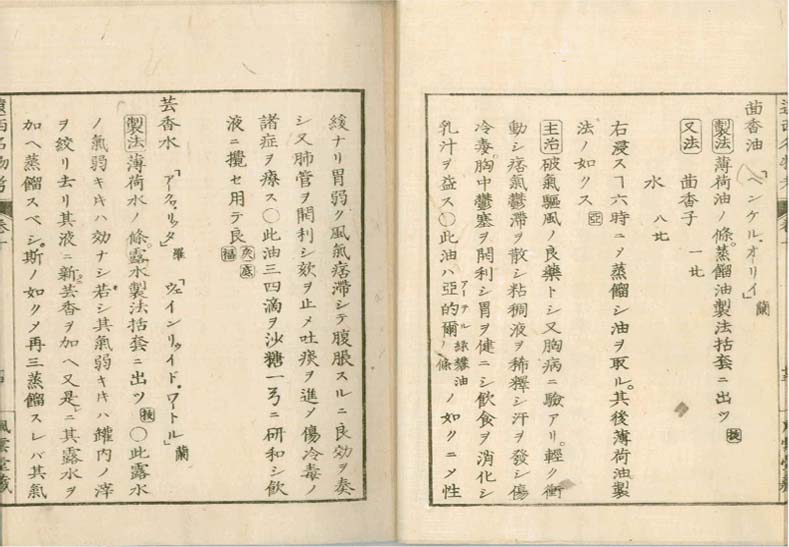 茴香油 「ヘンケル・オーリイ」蘭
製法 薄荷油ノ條。蒸餾油製法括套ニ出ツ
又法 茴香子 一廿
水 八廿
右浸スヿ六時ニ〆蒸餾シ油ヲ取ル。其後薄荷油製
法ノ如クス 亞
主治 破氣驅風ノ良藥トシ又胸病ニ驗アリ。輕ク衝
動シ痞氣鬱滯ヲ散シ粘稠液ヲ稀釋シ汗ヲ發シ傷
冷毒。胸中鬱塞ヲ開利シ胃ヲ健ニシ飲食ヲ消化シ
乳汁ヲ益ス〇此油ハ亞的爾ノ條ノ如クニ〆性
緩ナリ胃弱ク風氣痞滯シテ腹脹スルニ良効ヲ奏
シ又肺管ヲ開利シ欬ヲ止メ吐痰ヲ進メ傷冷毒ノ
諸症ヲ療ス〇此油三四滴ヲ沙糖一弓ニ研和シ飲
液ニ攪セ用テ良
芸香水 「アークァ、リュッタ」羅 「ウェインリュイド・ワートル」蘭
製法 薄荷水ノ條。露水製法括套ニ出ツ 〇此露水
ノ氣弱キキハ効ナシ若シ其氣弱キキハ罐内ノ滓
ヲ絞リ去リ其液ニ新芸香ヲ加ヘ又是ニ其露水ヲ
加ヘ蒸餾スベシ。斯ノ如ク〆再三蒸餾スレバ其氣
遠西名物考 卷十
風雲堂藏